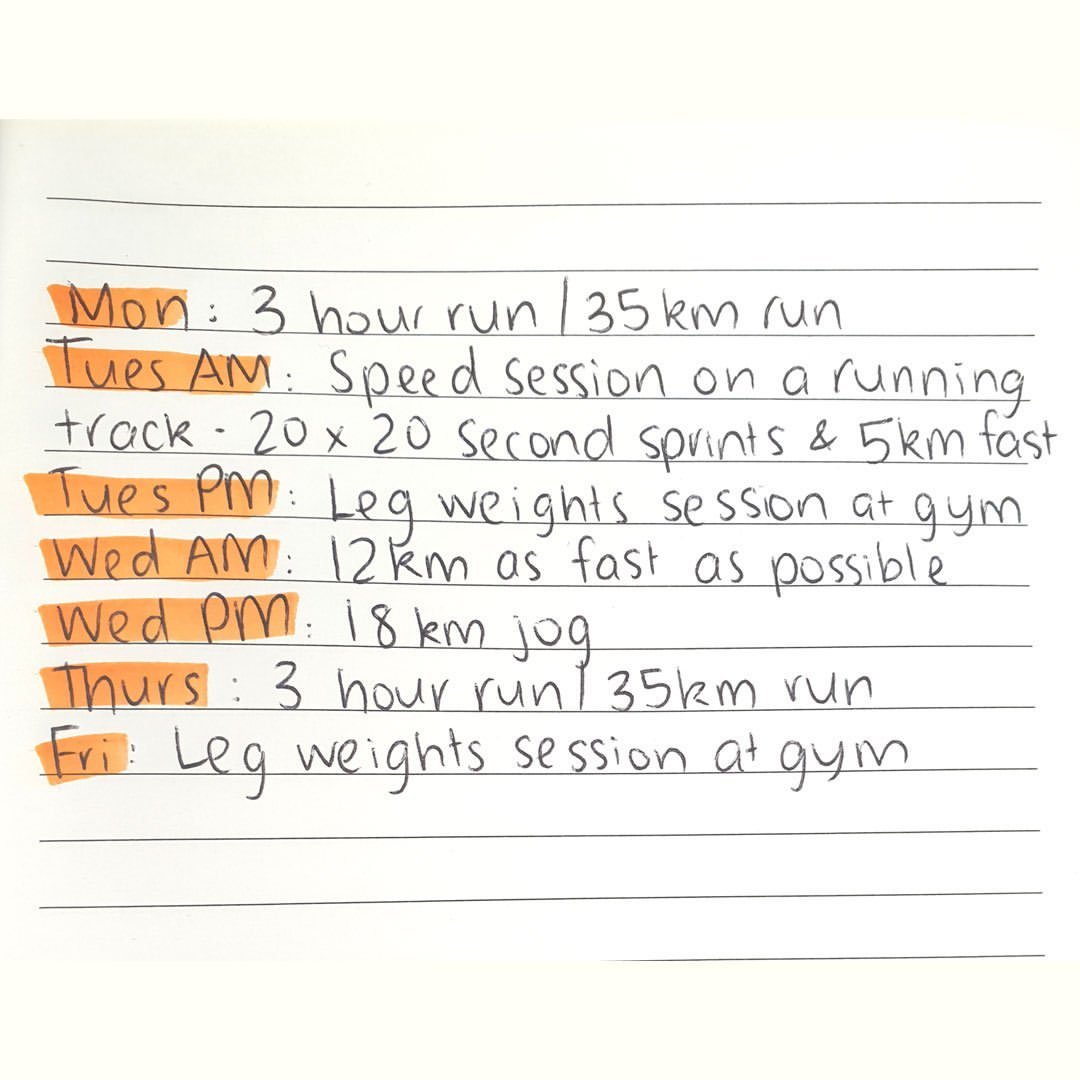 Mon: 3 hour run / 35km run
Tues AM: Speed session on a running
track - 20 x 20 second sprints & 5km fast
Tues PM: Leg weights session at gym
Wed AM: 12km as fast as possible
Wed PM: 18km jog
Thurs: 3 hour run / 35km run
Fri: Leg weights session at gym